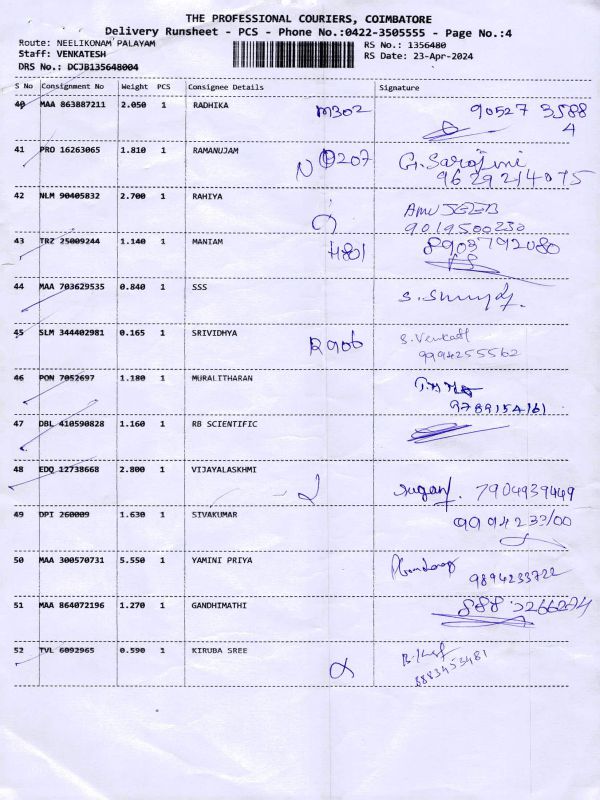 THE PROFESSIONAL COURIERS, COIMBATORE
Delivery Runsheet - PCS - Phone No.:0422-3505555 - Page No.:4
Route: NEELIKONAM PALAYAM RS No.: 1356480
Staff: VENKATESH RS Date: 23-Apr-2024
DRS No.: DCJB135648004
S No Consignment No Weight PCS Consignee Details Signature
40 MAA 863887211 2.050 1 RADHIKA M302 90527 3588
4
41 PRO 16263065 1.810 1 RAMANUJAM 207 G. Sarojini
9629214075
42 NLM 90405832 2.700 1 RAHIYA
9019500230
43 TRZ 25009244 1.140 1 MANIAM H801 8903792080
44 MAA 703629535 0.840 1 SSS
45 SLM 344402981 0.165 1 SRIVIDHYA R906 S. Venkat
9994255562
46 PON 7052697 1.180 1 MURALITHARAN
9789154161
47 DBL 410590828 1.160 1 RB SCIENTIFIC
48 EDQ 12738668 2.800 1 VIJAYALASKHMI Sugan. 7904939449
49 DPI 260009 1.630 1 SIVAKUMAR 9994233100
50 MAA 300570731 5.550 1 YAMINI PRIYA
9894233722
51 MAA 864072196 1.270 1 GANDHIMATHI
52 TVL 6092965 0.590 1 KIRUBA SREE
8883453481